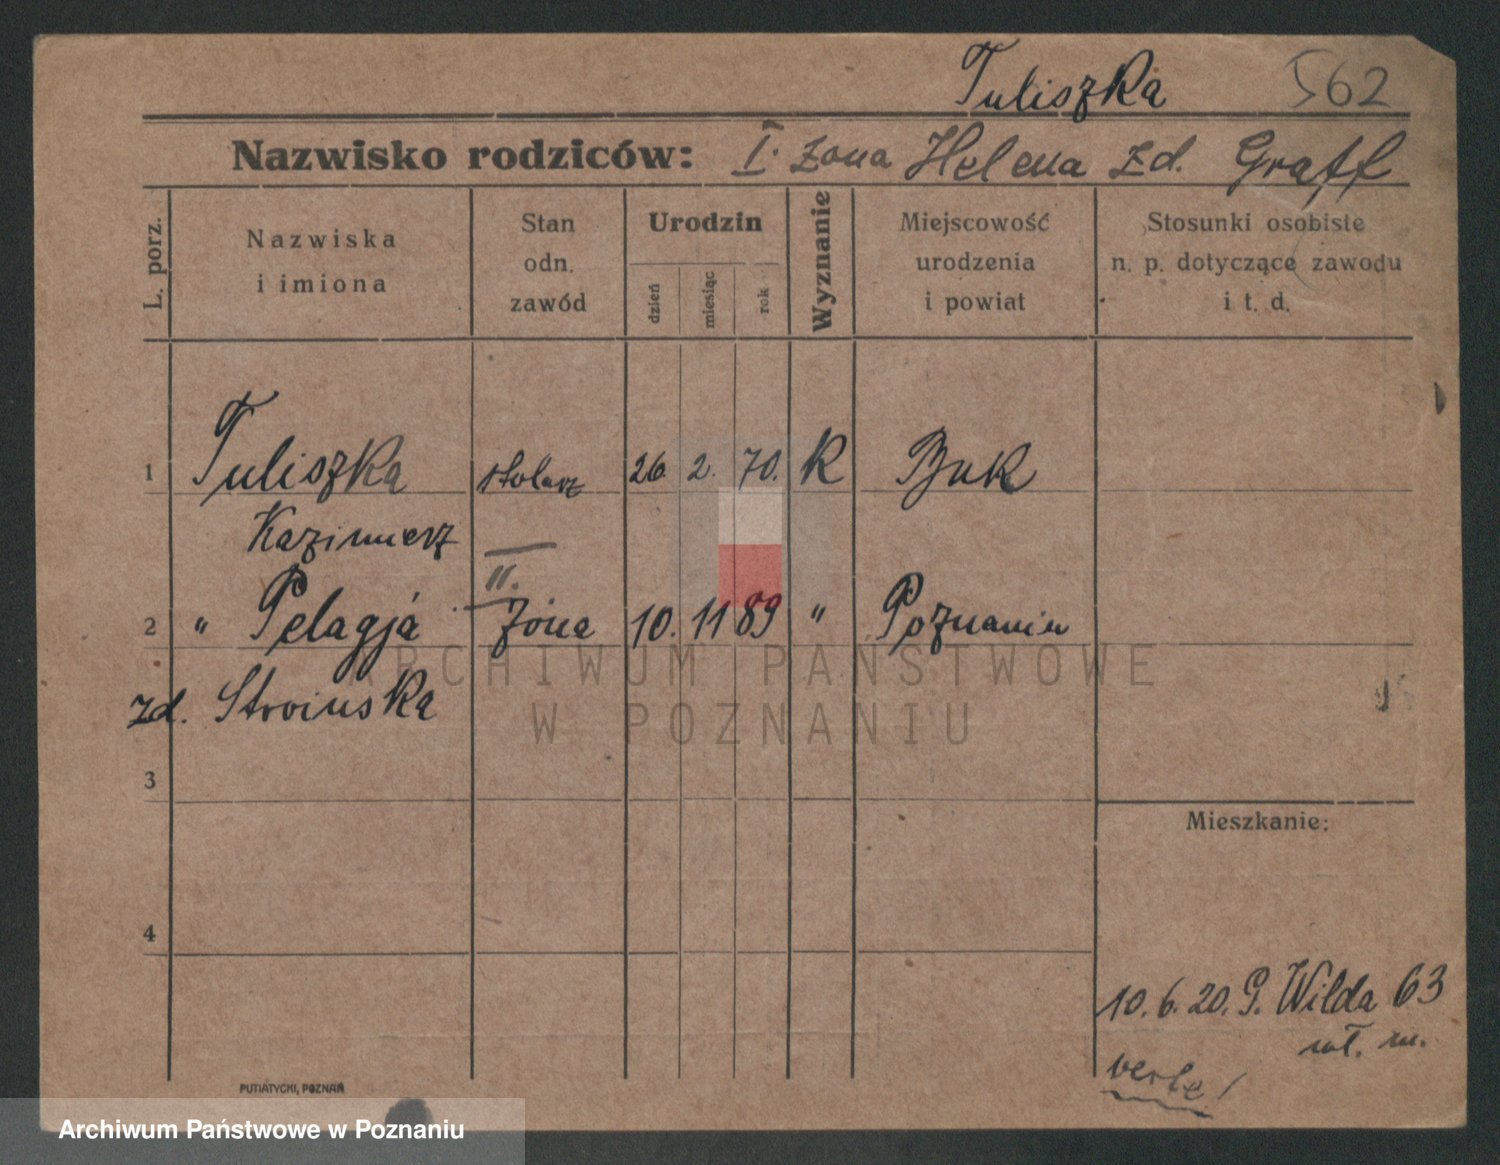 Tuliszka 562
Nazwisko rodziców: I. żona Helena zd. Graff
L. porz.
Nazwiska
i imiona
Stan
odn.
zawód
Urodzin
dzień
miesiąc
rok
Wyznanie
Miejscowość
urodzenia
i powiat
Stosunki osobiste
n. p. dotyczące zawodu
i t. d.
1 Tuliszka stolarz 26. 2. 70. K Buk
Kazimierz
II.
2 " Pelagja żona 10. 11 89 " Poznaniu
zd. Stroinska
3
Mieszkanie:
4
10. 6. 20. G. Wilda 63
wł. m.
verte!
PUTIATYCKI, POZNAŃ
ARCHIWUM PAŃSTWOWE
W POZNANIU
Archiwum Państwowe w Poznaniu